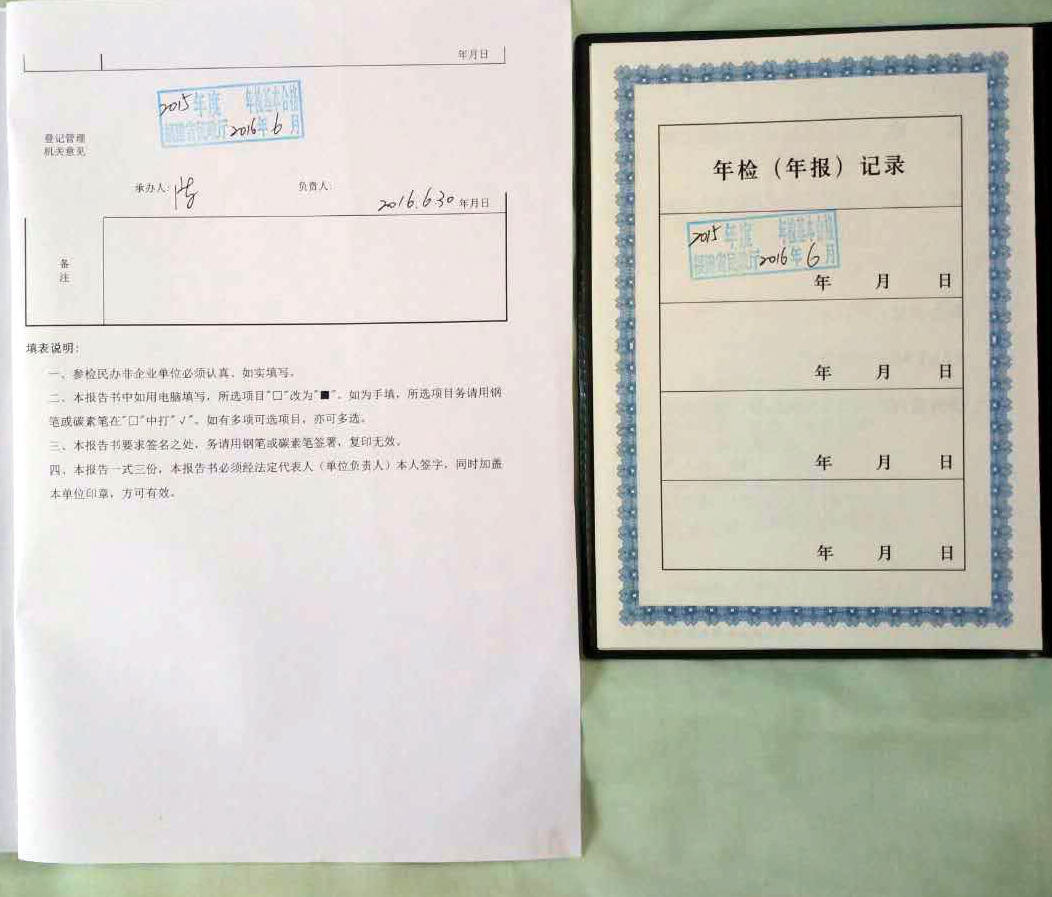 年月日
2015年度 年检基本合格
福建省民政厅2016年6月
登记管理
机关意见
承办人:
负责人:
2016.6.30年月日
备
注
填表说明:
一、参检民办非企业单位必须认真、如实填写。
二、本报告书中如用电脑填写，所选项目"□"改为"■"。如为手填，所选项目务请用钢
笔或碳素笔在"□"中打"√"。如有多项可选项目，亦可多选。
三、本报告书要求签名之处，务请用钢笔或碳素笔签署，复印无效。
四、本报告一式三份，本报告书必须经法定代表人（单位负责人）本人签字，同时加盖
本单位印章，方可有效。
年检（年报）记录
2015年度 年检基本合格
福建省民政厅2016年6月
年 月 日
年 月 日
年 月 日
年 月 日